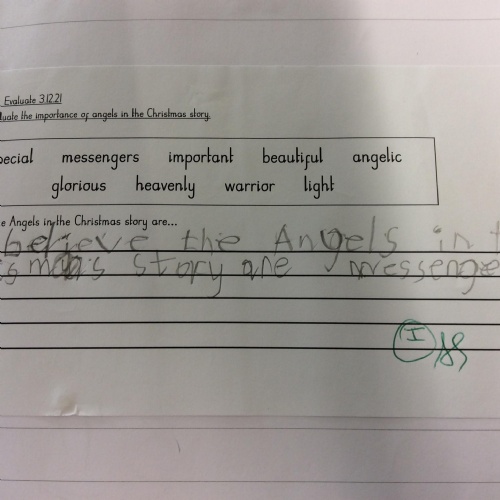 Evaluate 3.12.21
luate the importance of angels in the Christmas story.
pecial messengers important beautiful angelic
glorious heavenly warrior light
e Angels in the Christmas story are...
believe the Angels in t
s mas story are messenge
I